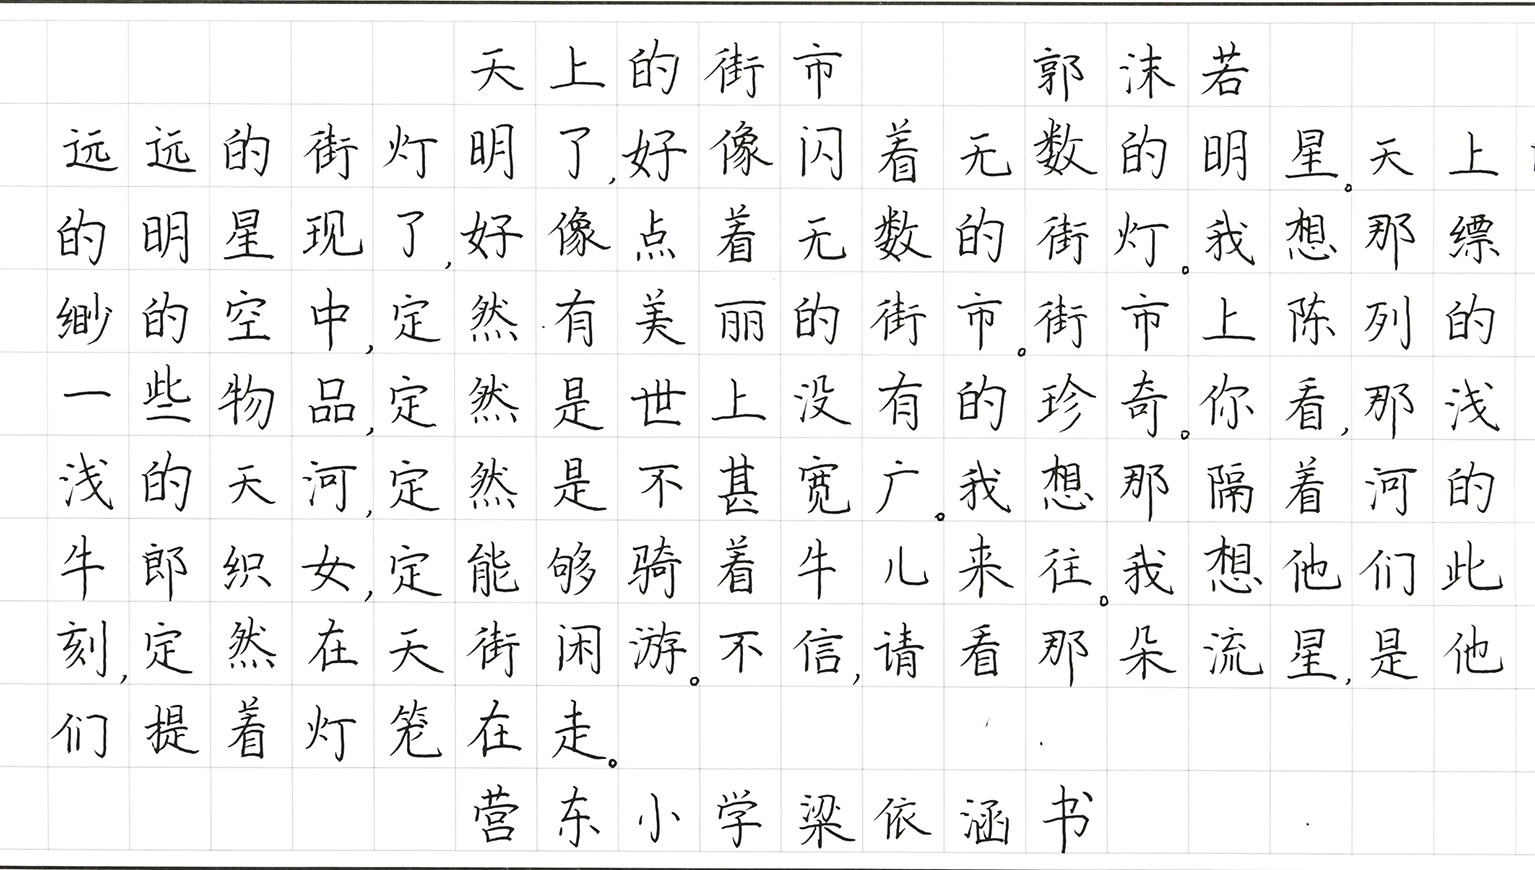 天上的街市 郭沫若
远远的街灯明了,好像闪着无数的明星。天上
的明星现了,好像点着无数的街灯。我想那缥
缈的空中,定然有美丽的街市。街市上陈列的
一些物品,定然是世上没有的珍奇。你看,那浅
浅的天河,定然是不甚宽广。我想那隔着河的
牛郎织女,定能够骑着牛儿来往。我想他们此
刻,定然在天街闲游。不信,请看那朵流星,是他
们提着灯笼在走。
营东小学梁依涵书